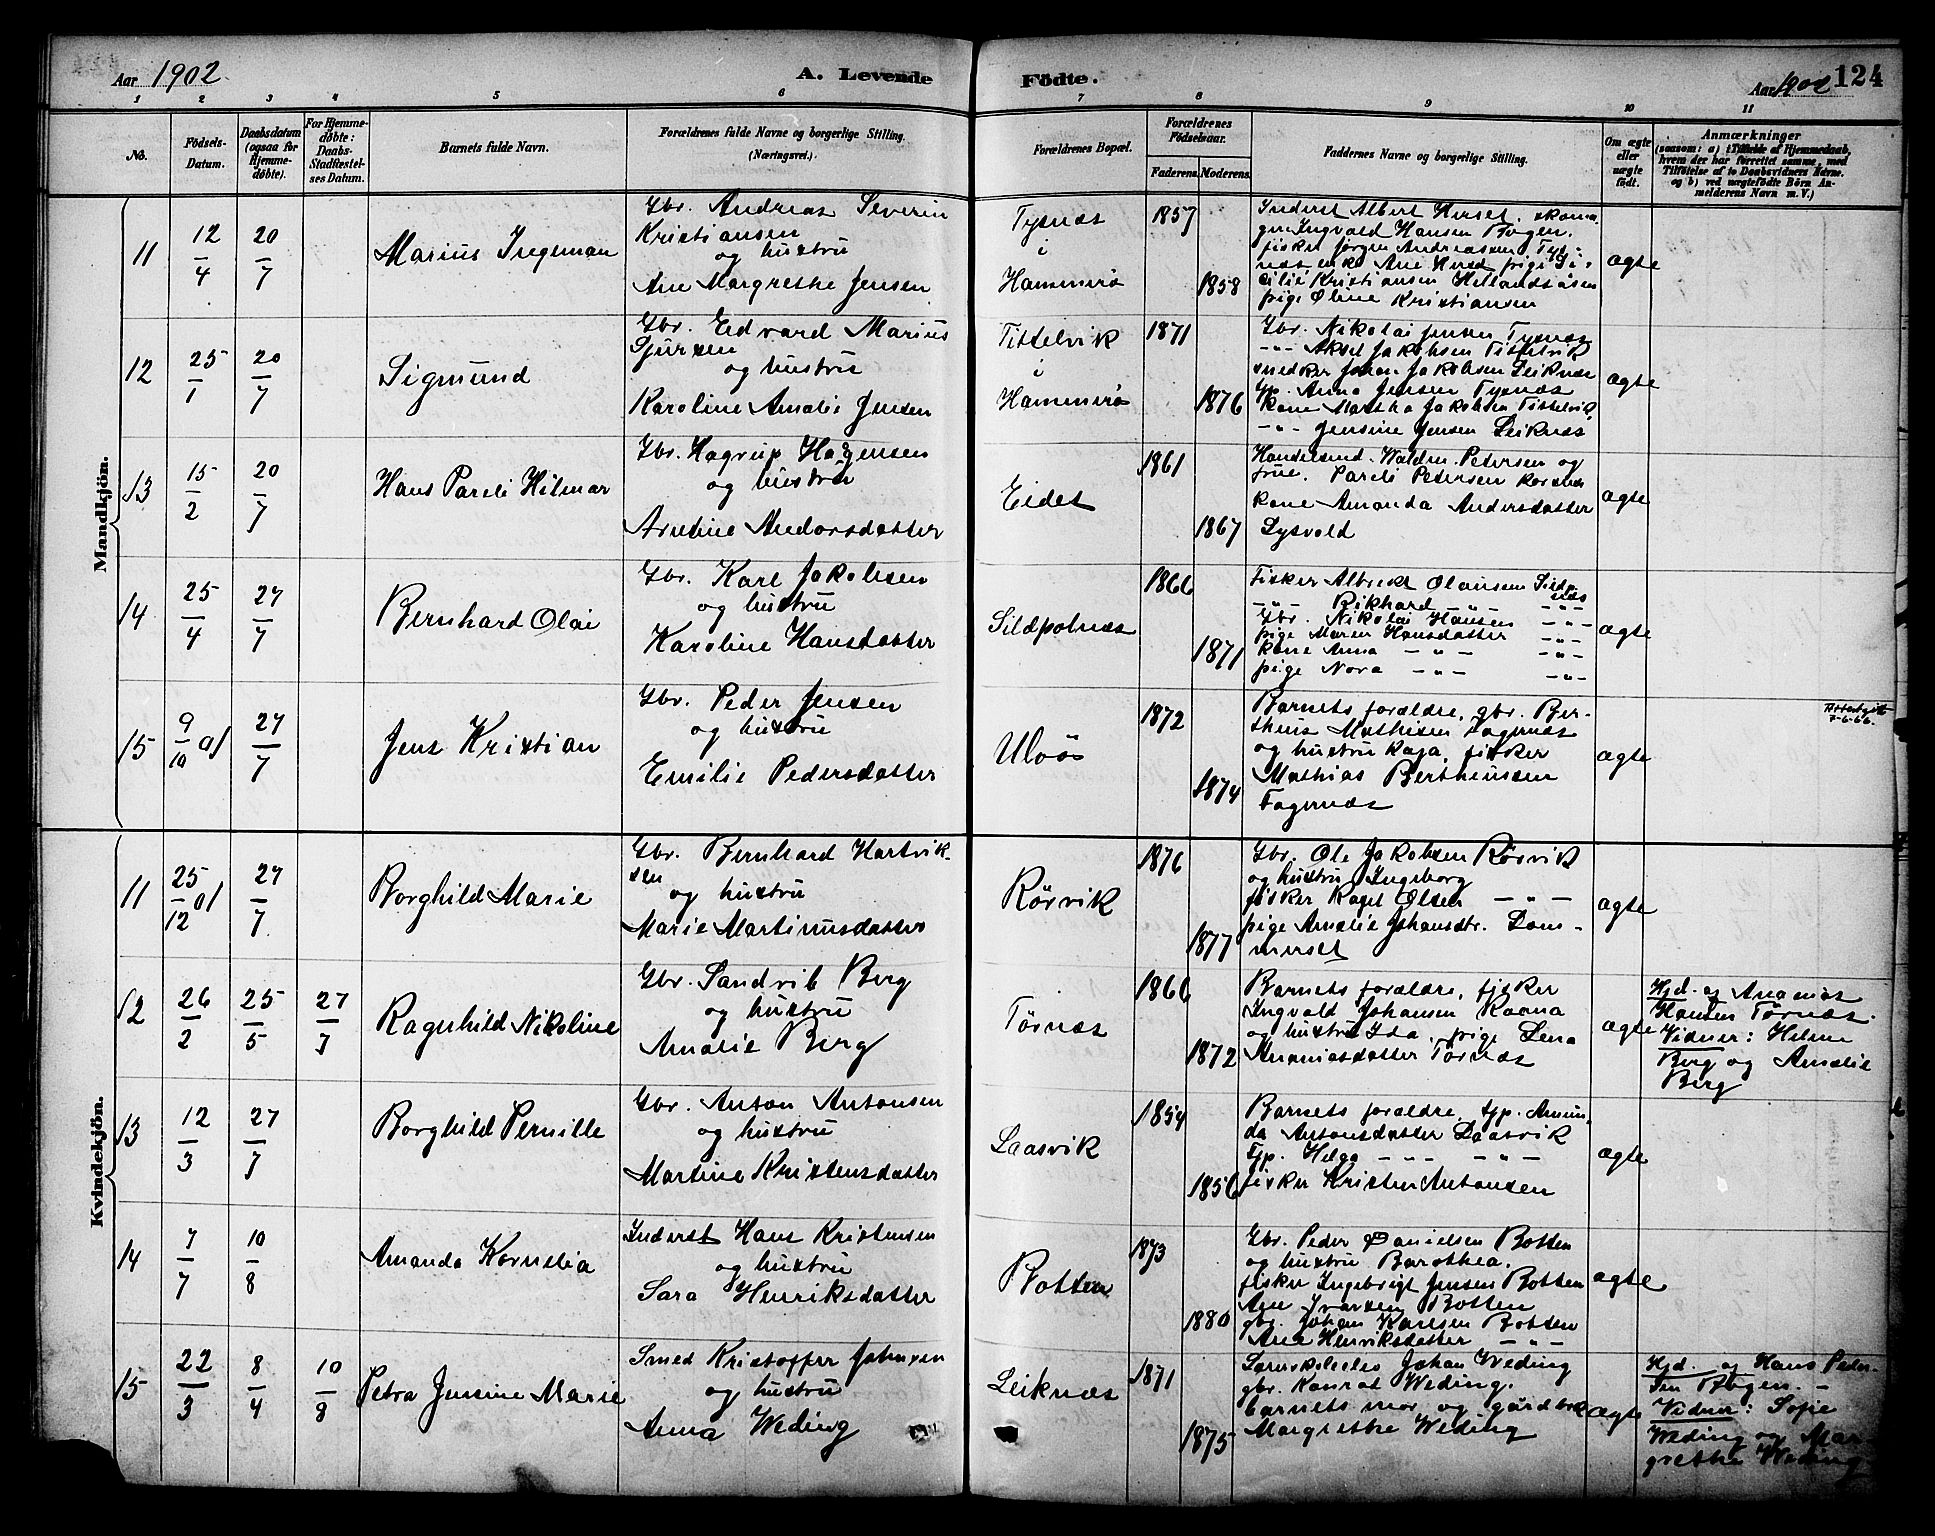 Aar 1902
A. Levende
Födte.
Aar 1902
124
1 2 3 4 5 6 7 8 9 10 11
No.
Födsels-
Datum.
Daabsdatum
(ogsaa for
Hjemme-
døbte).
For Hjemme-
døbte:
Daabs-
Stadfæstel-
ses Datum.
Barnets fulde Navn.
Forældrenes fulde Navne og borgerlige Stilling.
(Næringsvei.)
Forældrenes Bopæl.
Forældrenes
Födselsaar.
Faderens. Moderens.
Faddernes Navne og borgerlige Stilling.
Om ægte
eller
uægte
født.
Anmærkninger
(saasom: a) i Tilfælde af Hjemmedaab,
hvem der har forrettet samme, med
Tilföielse af to Daabsvidners Navne.
og b) ved uægtefödte Börn An-
melderens Navn m. V.)
Mandkjön.
11
12/4
20/7
Marius Ingeman
Gbr. Andreas Severin
Kristiansen
og hustru
Ane Margrethe Jensen
Tysnæs
i
Hammerö
1857
1858
Inderst Albert Herset, skoma-
ger Ingvald Hansen Bogen,
fisker Jørgen Andreassen Tys-
næs, enke Ane pige
Kristiansen
pige Oline Kristiansen
ægte
12
25/1
20/7
Sigmund
Gbr. Edvard Marius
Sjursen
og hustru
Karoline Amalie Jensen
Tittelvik
i
Hammerö
1871
1876
Gbr. Nikolai Jensen Tysnæs
-"- Aksel Jakobsen Tittelvik
snedker Johan Jakobsen Leiknæs
Anna Jensen Tysnæs
kone Martha Jakobsen Tittelvik
-"- Jensine Jensen Leiknæs
ægte
13
15/2
20/7
Hans Pareli Hilmar
Gbr. Hagrup Hagensen
og hustru
Arntine Andorsdatter
Eidet
1861
1867
Handelsmd. Waldm. Petersen og
frue. Pareli Petersen
kone Amanda Andersdatter
Dysvold
ægte
14
25/4
27/7
Bernhard Olai
Gbr. Karl Jakobsen
og hustru
Karoline Hansdatter
Sildpolnæs
1866
1871
Fisker Albrikt Olausen Sildp.
næs
-"- Rikhard -"- -"-
Gbr. Nikolai Hansen -"-
pige Maren Hansdatter -"-
kone Anna -"- -"-
pige Nora -"- -"-
ægte
15
9/10 01
27/7
Jens Kristian
Gbr. Peder Jensen
og hustru
Emilie Pedersdatter
Ulöö
1872
1874
Barnets forældre, gbr. Ber-
theus Mathisen Fagernæs
og hustru Kaja, fisker
Mathias Bertheussen
Fagernæs
ægte
7-6-66.
Kvindekjön.
11
25/12 01
27/7
Borghild Marie
Gbr. Bernhard Hartvik-
sen
og hustru
Marie Martinusdatter
Rörvik
1876
1877
Gbr. Ole Jakobsen Rörvik
og hustru Ingeborg
fisker Kagel Olsen -"-
pige Amalie Johansdtr. Dom-
merset
ægte
12
26/2
25/5
27/7
Ragnhild Nikoline
Gbr. Sandvik Berg
og hustru
Amalie Berg
Törnæs
1866
1872
Barnets forældre, fisker
Ingvald Johansen
og hustru Ida, pige Lena
Ananiasdatter Törnæs
ægte
Hjd. af Ananias
Hansen Törnæs.
Vidner: Helene
Berg og Amalie
Berg
13
12/3
27/7
Borghild Pernille
Gbr. Anton Antonsen
og hustru
Martine Kristensdatter
Laasvik
1854
1856
Barnets forældre, tjp. Aman-
da Antonsdatter Laasvik
tjp. Helga -"- -"-
fisker Kristen Antonsen
ægte
14
7/7
10/8
Amanda Kornelia
Inderst Hans Kristensen
og hustru
Sara Henriksdatter
Botten
1873
1880
Gbr. Peder Danielsen Botten
og hustru Barothea,
fisker Ingebrigt Jensen Botten
Ane Ivarsen Botten
gbr. Johan Karlsen Botten
Ane Henriksdatter -"-
ægte
15
22/3
8/4
10/8
Petra Jensine Marie
Smed Kristoffer Johnsen
og hustru
Anna Weding
Leiknæs
1871
1875
Johan Weding
gbr. Konrad Weding.
barnets mor og gårdbr.
Margrethe Weding
ægte
Hjd. af Hans Peder-
sen Bogen. -
Vidner: Sofie
Weding og Mar-
grethe Weding